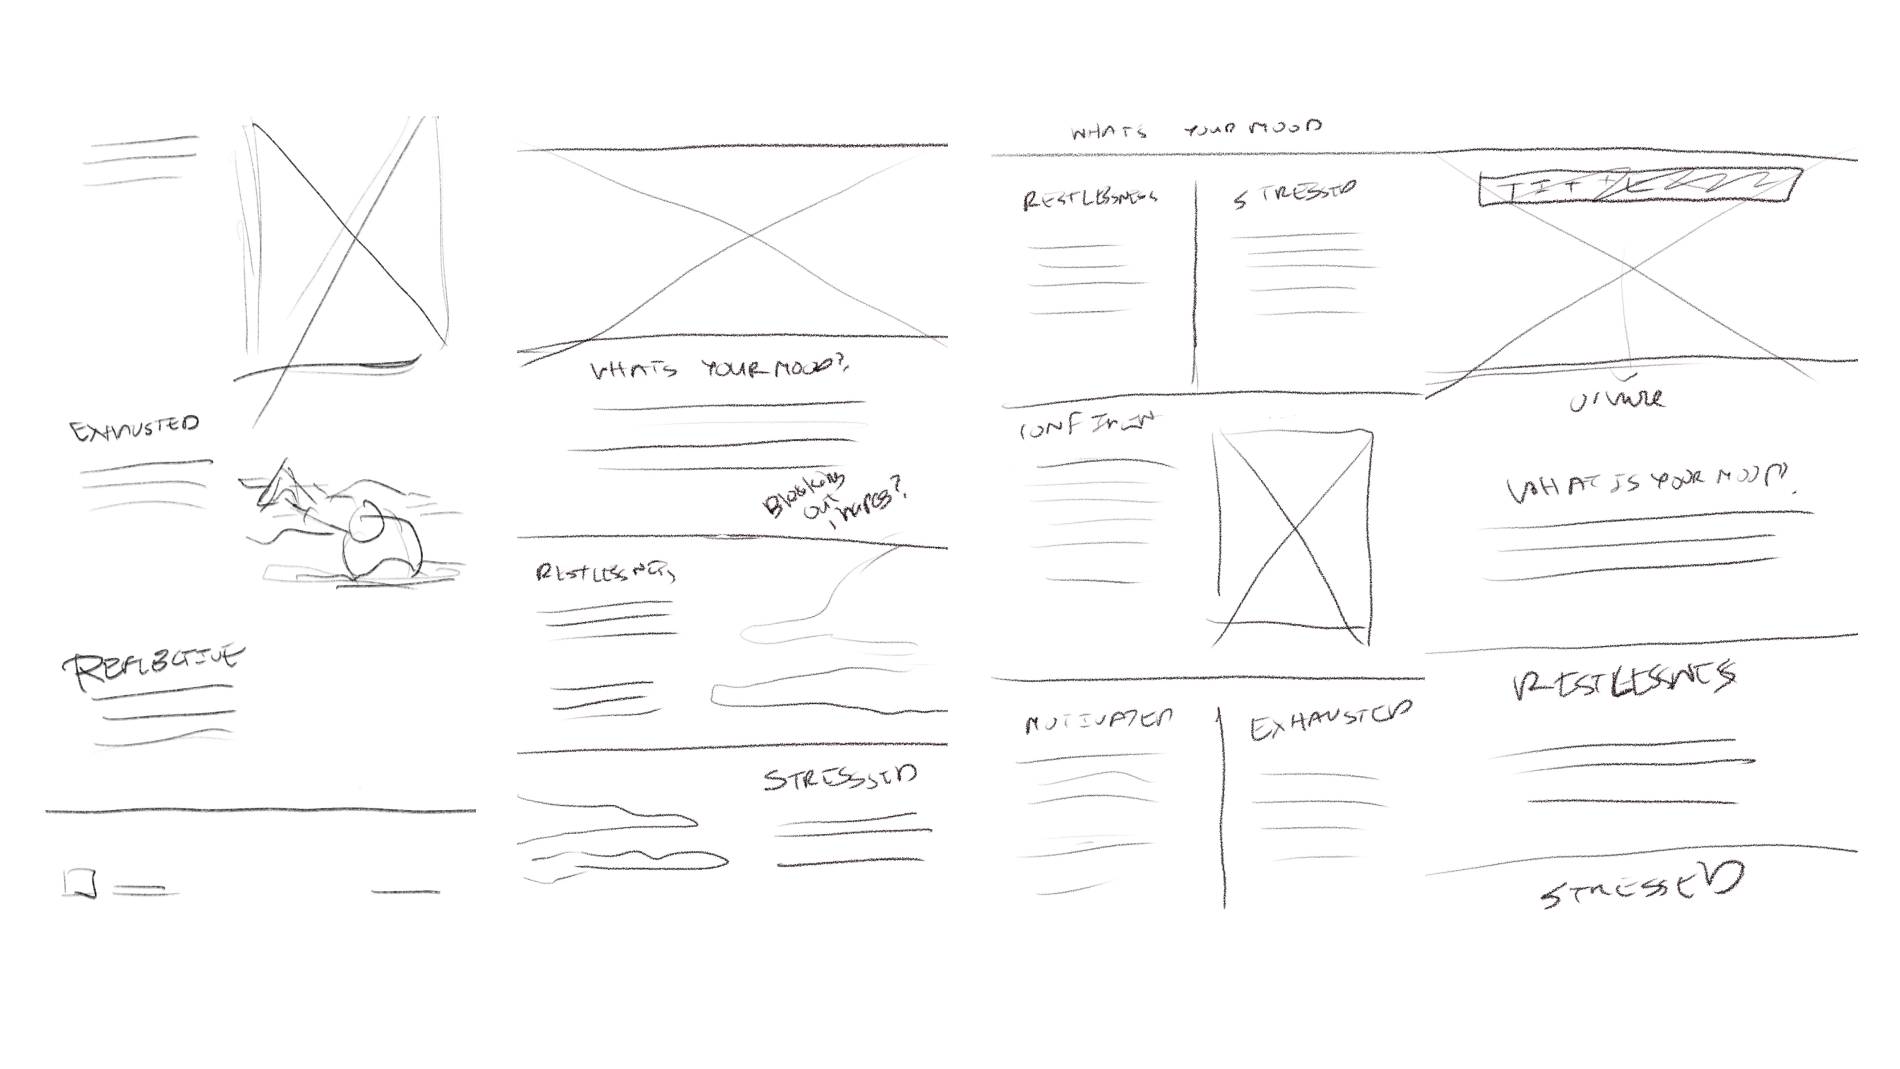 EXHAUSTED
REFLECTIVE
WHATS YOUR MOOD?
Blocking
out
images?
RESTLESSNESS
STRESSED
WHATS YOUR MOOD
RESTLESSNESS
STRESSED
MOTIVATED
EXHAUSTED
WHAT IS YOUR MOOD?
RESTLESSNESS
STRESSED